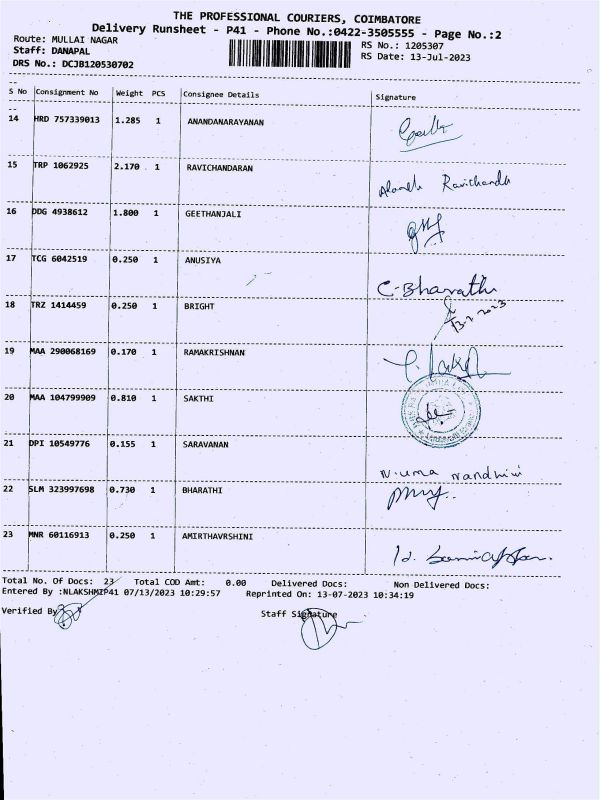 THE PROFESSIONAL COURIERS, COIMBATORE
Delivery Runsheet - P41 - Phone No.:0422-3505555 - Page No.:2
Route: MULLAI NAGAR
RS No.: 1205307
Staff: DANAPAL
RS Date: 13-Jul-2023
DRS No.: DCJB120530702
S No Consignment No Weight PCS Consignee Details Signature
14 HRD 757339013 1.285 1 ANANDANARAYANAN
15 TRP 1062925 2.170 1 RAVICHANDARAN
Ravichandh
16 DDG 4938612 1.800 1 GEETHANJALI
17 TCG 6042519 0.250 1 ANUSIYA
C-Bharathi
18 TRZ 1414459 0.250 1 BRIGHT
13-7-2023
19 MAA 290068169 0.170 1 RAMAKRISHNAN
20 MAA 104799909 0.810 1 SAKTHI
21 DPI 10549776 0.155 1 SARAVANAN
N.uma nandhini
22 SLM 323997698 0.730 1 BHARATHI
23 MNR 60116913 0.250 1 AMIRTHAVRSHINI
Total No. Of Docs: 23 Total COD Amt: 0.00 Delivered Docs: Non Delivered Docs:
Entered By :NLAKSHMIP41 07/13/2023 10:29:57 Reprinted On: 13-07-2023 10:34:19
Verified By
Staff Signature